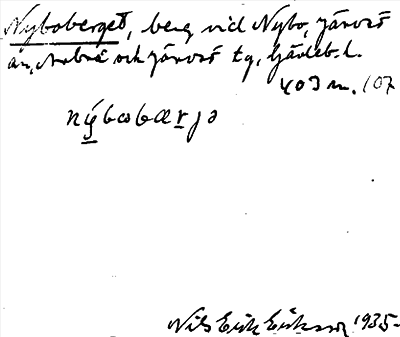 Nyboberget, berg vid Nybo, Järvsö
sn, Arbrå och Järvsö tg, Gävleb. l.
403 m. 107
nýbωbærjə
Nils Erik Eriksson 1935